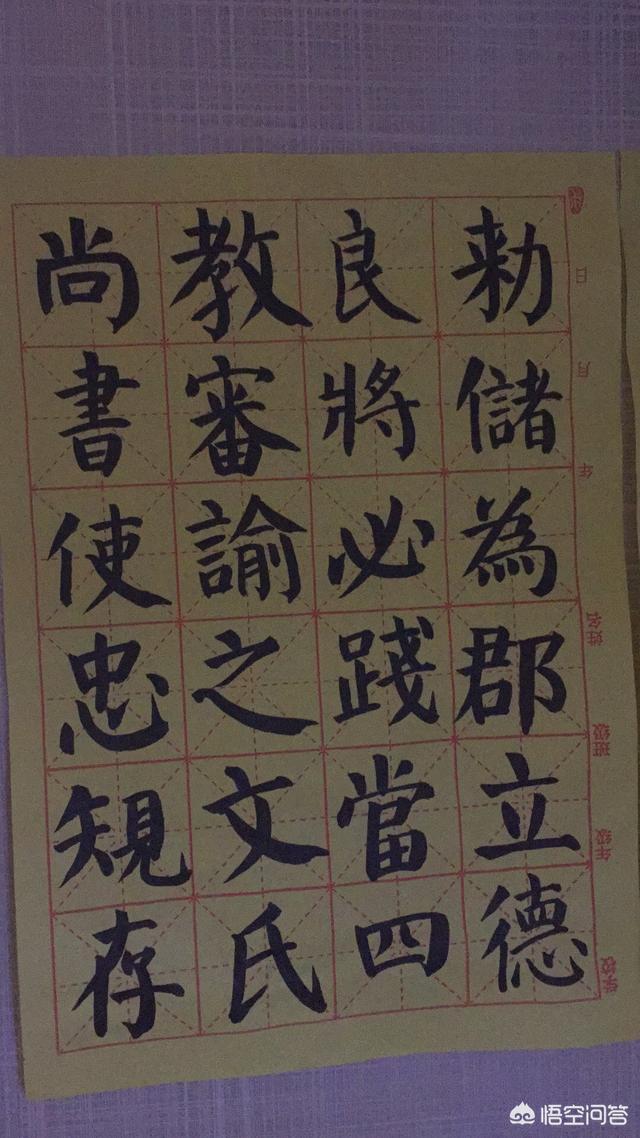 勑儲為郡立德
良將必踐當四
教審諭之文氏
尚書使忠䂓存
学校 年级 班级 姓名 年 月 日
悟空问答